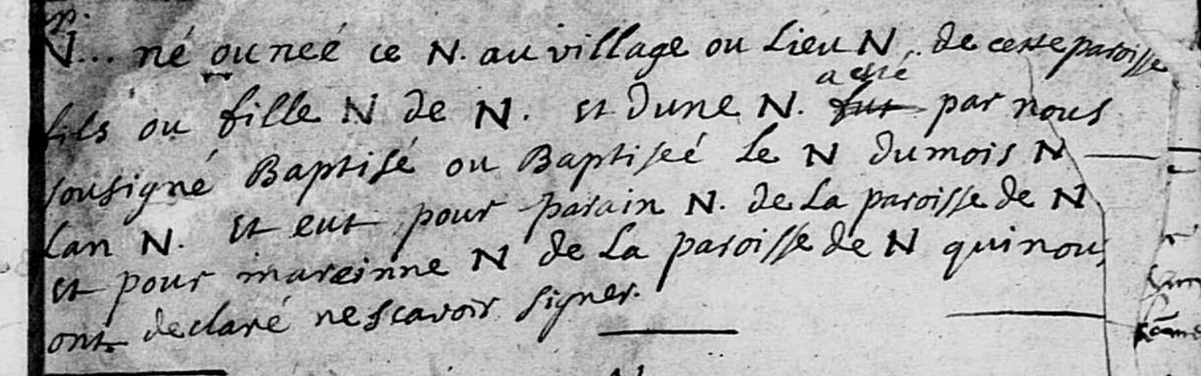 N... né ou neé ce N. au village ou Lieu N.. de cette paroisse
fils ou fille N de N. et dune N. a esté fut par nous
sousigné Baptisé ou Baptiseé le N du mois N
Lan N. et eut pour parain N. de La paroisse de N
et pour mareinne N de La paroisse de N qui nous
ont declaré ne scavoir signer.